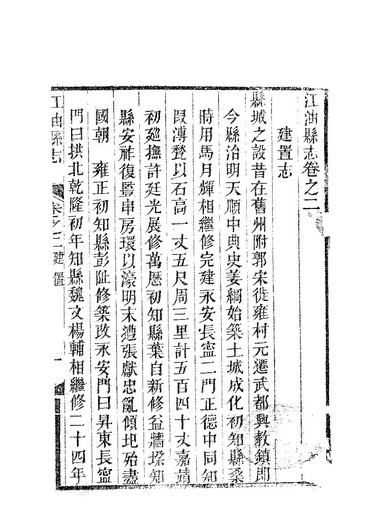 江油縣志卷之二
建置志
縣城之設昔在舊州附郭宋徙雍村元遷武都興教鎮即
今縣治明天順中典史姜綱始築土城成化初知縣桑
時用馬月輝相繼修完建永安長寧二門正德中同知
段溥甃以石高一丈五尺周三里計五百四十丈嘉靖
初廵撫許廷光展修萬厯初知縣葉自新修益牆垜知
縣安祚復爲串房環以濠明末遭張獻忠亂傾圯殆盡
國朝 雍正初知縣彭阯修築改永安門曰昇東長寧
門曰拱北乾隆初年知縣魏文楊輔相繼修二十四年
江油縣志
卷之二建置
一